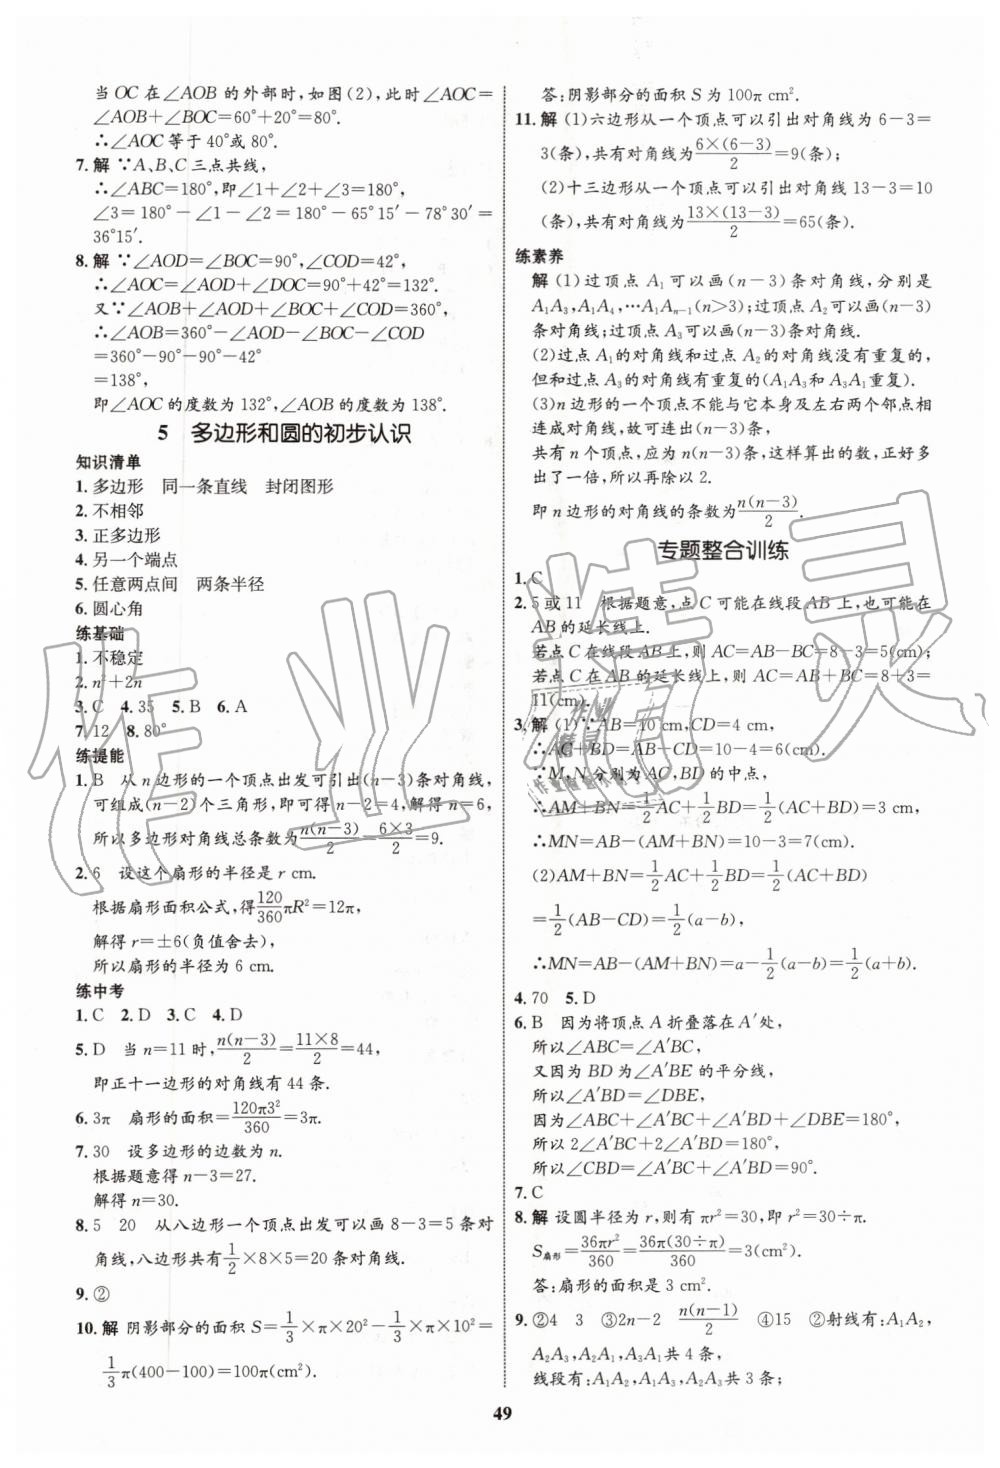 当 OC 在∠AOB 的外部时,如图(2),此时∠AOC=
∠AOB+∠BOC=60°+20°=80°.
∴∠AOC 等于 40°或 80°.
7. 解 ∵A、B、C 三点共线,
∴∠ABC=180°,即∠1+∠2+∠3=180°,
∠3=180°-∠1-∠2=180°-65°15′-78°30′=
36°15′.
8. 解 ∵∠AOD=∠BOC=90°,∠COD=42°,
∴∠AOC=∠AOD+∠DOC=90°+42°=132°.
又∵∠AOB+∠AOD+∠BOC+∠COD=360°,
∴∠AOB=360°-∠AOD-∠BOC-∠COD
=360°-90°-90°-42°
=138°,
即∠AOC 的度数为 132°,∠AOB 的度数为 138°.
5 多边形和圆的初步认识
知识清单
1. 多边形 同一条直线 封闭图形
2. 不相邻
3. 正多边形
4. 另一个端点
5. 任意两点间 两条半径
6. 圆心角
练基础
1. 不稳定
2. n²+2n
3. C 4. 35 5. B 6. A
7. 12 8. 80°
练提能
1. B 从 n 边形的一个顶点出发可引出(n-3)条对角线,
可组成(n-2)个三角形,即可得 n-2=4,解得 n=6,
所以多边形对角线总条数为 n(n-3)/2=6×3/2=9.
2. 6 设这个扇形的半径是 r cm.
根据扇形面积公式,得 120/360 πR²=12π,
解得 r=±6(负值舍去),
所以扇形的半径为 6 cm.
练中考
1. C 2. D 3. C 4. D
5. D 当 n=11 时,n(n-3)/2=11×8/2=44,
即正十一边形的对角线有 44 条.
6. 3π 扇形的面积=120π3²/360=3π.
7. 30 设多边形的边数为 n.
根据题意得 n-3=27.
解得 n=30.
8. 5 20 从八边形一个顶点出发可以画 8-3=5 条对
角线,八边形共有 1/2×8×5=20 条对角线.
9. ②
10. 解 阴影部分的面积 S=1/3×π×20²-1/3×π×10²=
1/3π(400-100)=100π(cm²).
答:阴影部分的面积 S 为 100π cm².
11. 解 (1)六边形从一个顶点可以引出对角线为 6-3=
3(条),共有对角线为 6×(6-3)/2=9(条);
(2)十三边形从一个顶点可以引出对角线 13-3=10
(条),共有对角线为 13×(13-3)/2=65(条).
练素养
解 (1)过顶点 A₁可以画(n-3)条对角线,分别是
A₁A₃,A₁A₄,…A₁Aₙ₋₁(n>3);过顶点 A₂可以画(n-3)
条对角线;过顶点 A₃可以画(n-3)条对角线.
(2)过点 A₁的对角线和过点 A₂的对角线没有重复的,
但和过点 A₃的对角线有重复的(A₁A₃和 A₃A₁重复).
(3)n 边形的一个顶点不能与它本身及左右两个邻点相
连成对角线,故可连出(n-3)条.
共有 n 个顶点,应为 n(n-3)条,这样算出的数,正好多
出了一倍,所以再除以 2.
即 n 边形的对角线的条数为 n(n-3)/2.
专题整合训练
1. C
2. 5 或 11 根据题意,点 C 可能在线段 AB 上,也可能在
AB 的延长线上.
若点 C 在线段 AB 上,则 AC=AB-BC=8-3=5(cm);
若点 C 在 AB 的延长线上,则 AC=AB+BC=8+3=
11(cm).
3. 解 (1)∵AB=10 cm,CD=4 cm,
∴AC+BD=AB-CD=10-4=6(cm).
∵M,N 分别为 AC,BD 的中点,
∴AM+BN=1/2AC+1/2BD=1/2(AC+BD)=3 cm,
∴MN=AB-(AM+BN)=10-3=7(cm).
(2)AM+BN=1/2AC+1/2BD=1/2(AC+BD)
=1/2(AB-CD)=1/2(a-b),
∴MN=AB-(AM+BN)=a-1/2(a-b)=1/2(a+b).
4. 70 5. D
6. B 因为将顶点 A 折叠落在 A′处,
所以∠ABC=∠A′BC,
又因为 BD 为∠A′BE 的平分线,
所以∠A′BD=∠DBE,
因为∠ABC+∠A′BC+∠A′BD+∠DBE=180°,
所以 2∠A′BC+2∠A′BD=180°,
所以∠CBD=∠A′BC+∠A′BD=90°.
7. C
8. 解 设圆半径为 r,则有 πr²=30,即 r²=30÷π.
S扇形=36πr²/360=36π(30÷π)/360=3(cm²).
答:扇形的面积是 3 cm².
9. ②4 3 ③2n-2 n(n-1)/2 ④15 ②射线有:A₁A₂,
A₂A₃,A₂A₁,A₃A₁共 4 条,
线段有:A₁A₂,A₁A₃,A₂A₃共 3 条;
49
作业精灵